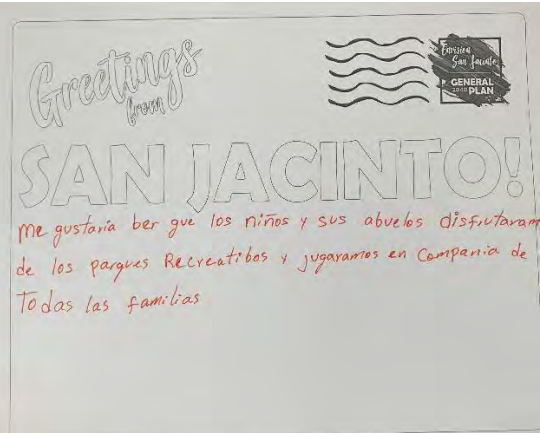 Greetings
from
Envision
San Jacinto
GENERAL
2040 PLAN
SAN JACINTO!
me gustaria ber que los niños y sus abuelos disfrutaram
de los parques Recreatibos y jugaramos en Compania de
Todas las familias